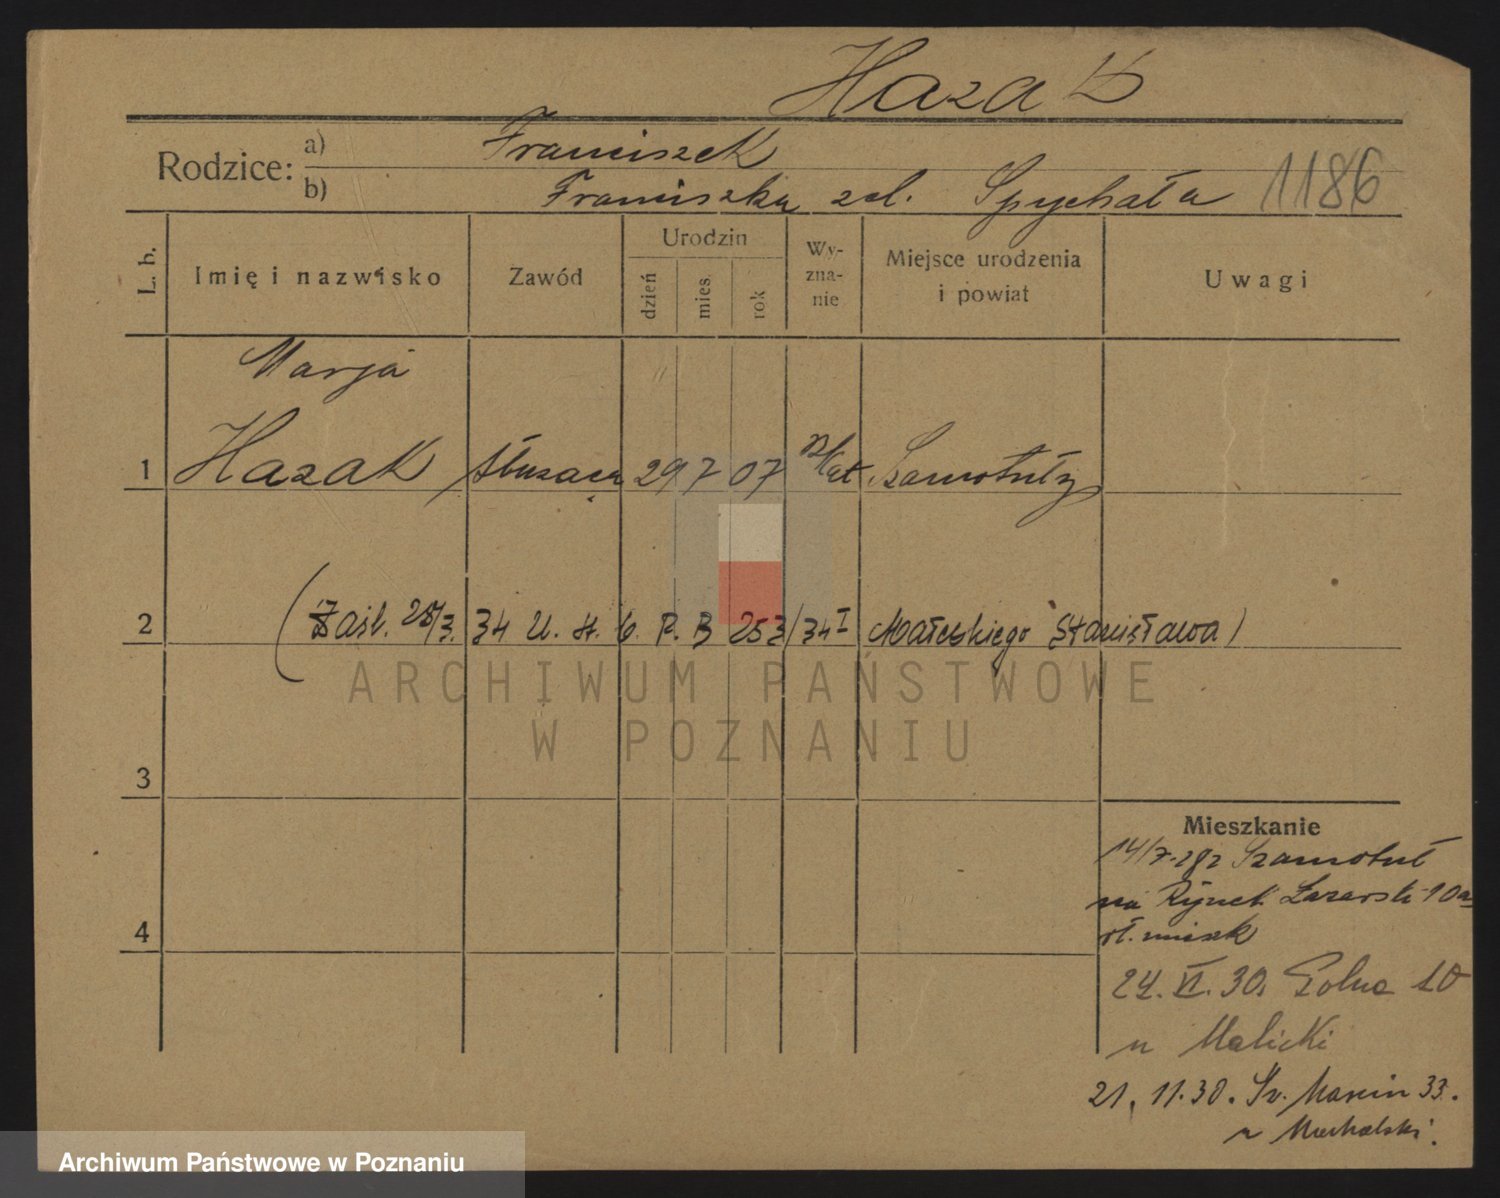 Hazak
Rodzice: a) Franciszek
b) Franciszka zd. Spychała 1186
L. b. Imię i nazwisko Zawód Urodzin dzień mies. rok Wy-zna-nie Miejsce urodzenia i powiat Uwagi
Marja
1 Hazak służąca 29 7 07 rz/kat Szamotuły
2 (Zaśl. 28/3. 34 U. st. P. B 253/34 I Małeckiego Stanisława)
ARCHIWUM PAŃSTWOWE
W POZNANIU
3
Mieszkanie
14/7.28 z Szamotuł
na Rynek Łazarski 10a
4
24. VI. 30. Polna 10
u Malicki
21. 11. 30. Św. Marcin 33.
u
Archiwum Państwowe w Poznaniu